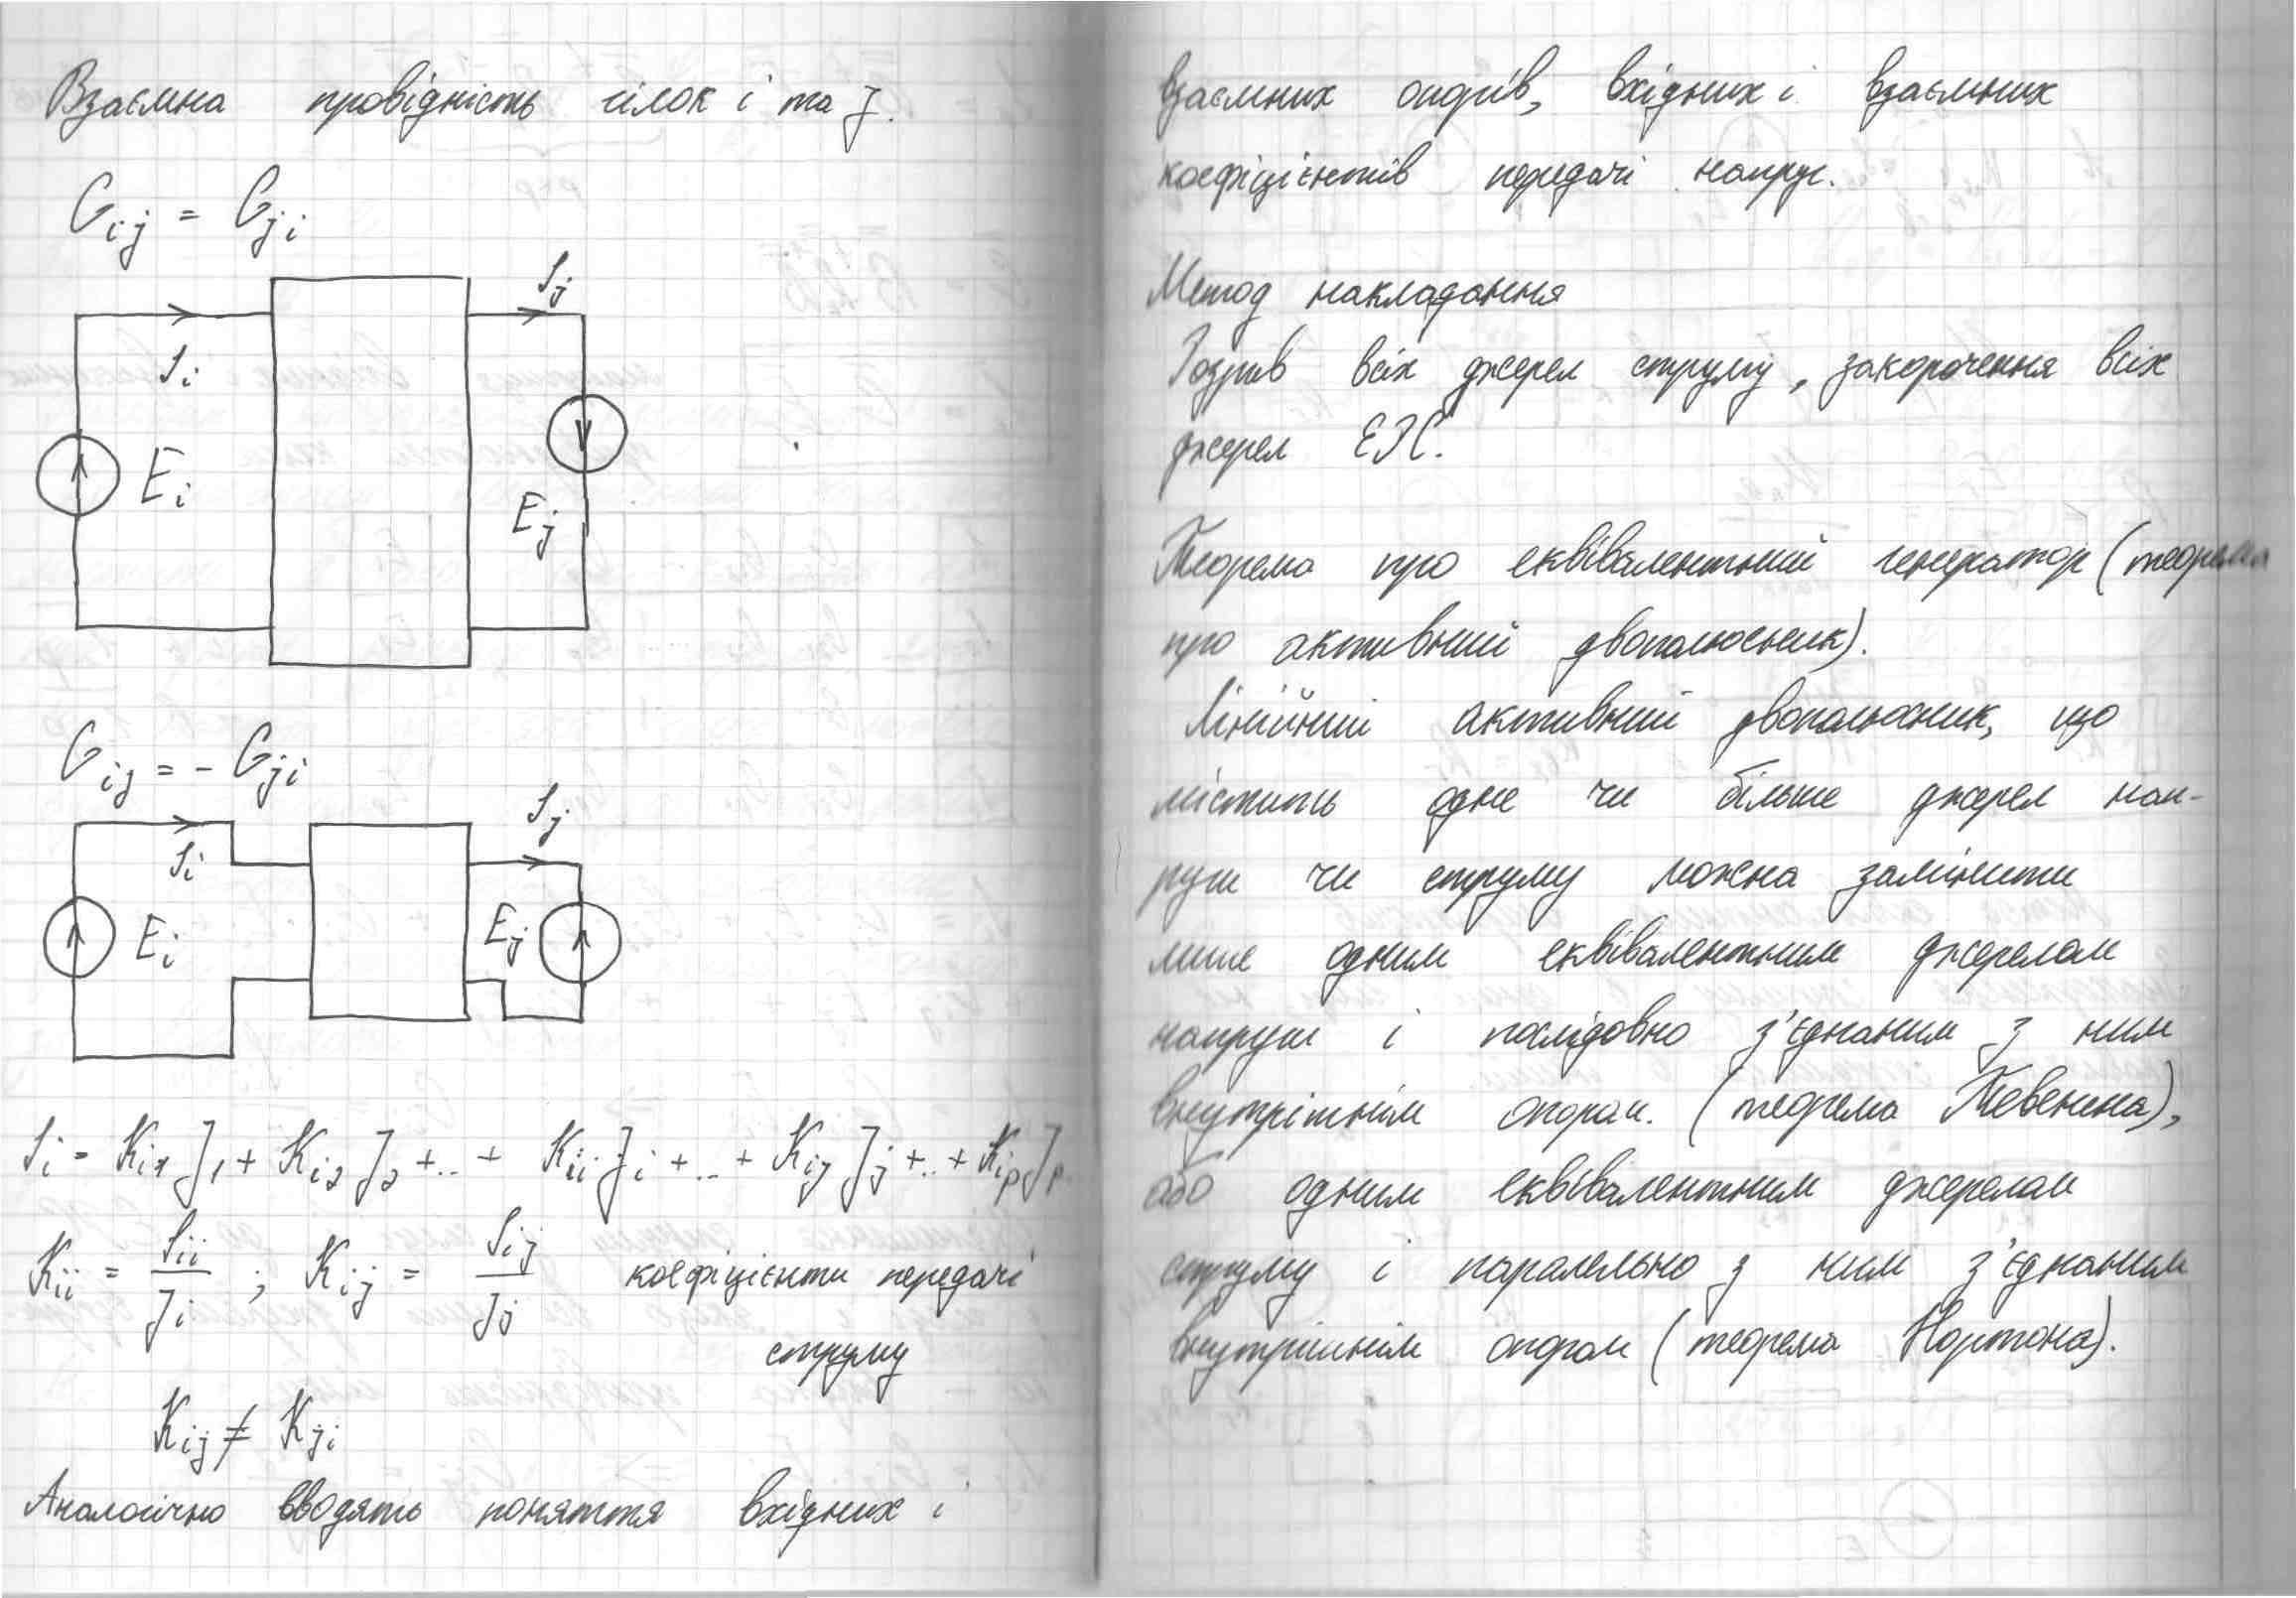 Взаємна провідність гілок i та j.
G i j = G j i
I j
I i
E i
E j
G i j = - G j i
I j
I i
E i
E j
I i = K i 1 J 1 + K i 2 J 2 + .. + K i i J i + .. + K i j J j + .. + K i p J p.
K i i = I i i / J i ; K i j = I i j / J j коефіцієнти передачі
струму
K i j ≠ K j i
Аналогічно вводять поняття вхідних і
взаємних опорів, вхідних і взаємних
коефіцієнтів передачі напруг.
Метод накладання
Розрив всіх джерел струму, закорочення всіх
джерел ЕРС.
Теорема про еквівалентний генератор (теорема
про активний двополюсник).
Лінійний активний двополюсник, що
містить одне чи більше джерел нап-
руги чи струму можна замінити
лише одним еквівалентним джерелом
напруги і послідовно з'єднаним з ним
внутрішнім опором. (теорема Тевенина),
або одним еквівалентним джерелом
струму і паралельно з ним з'єднаним
внутрішнім опором (теорема Нортона).